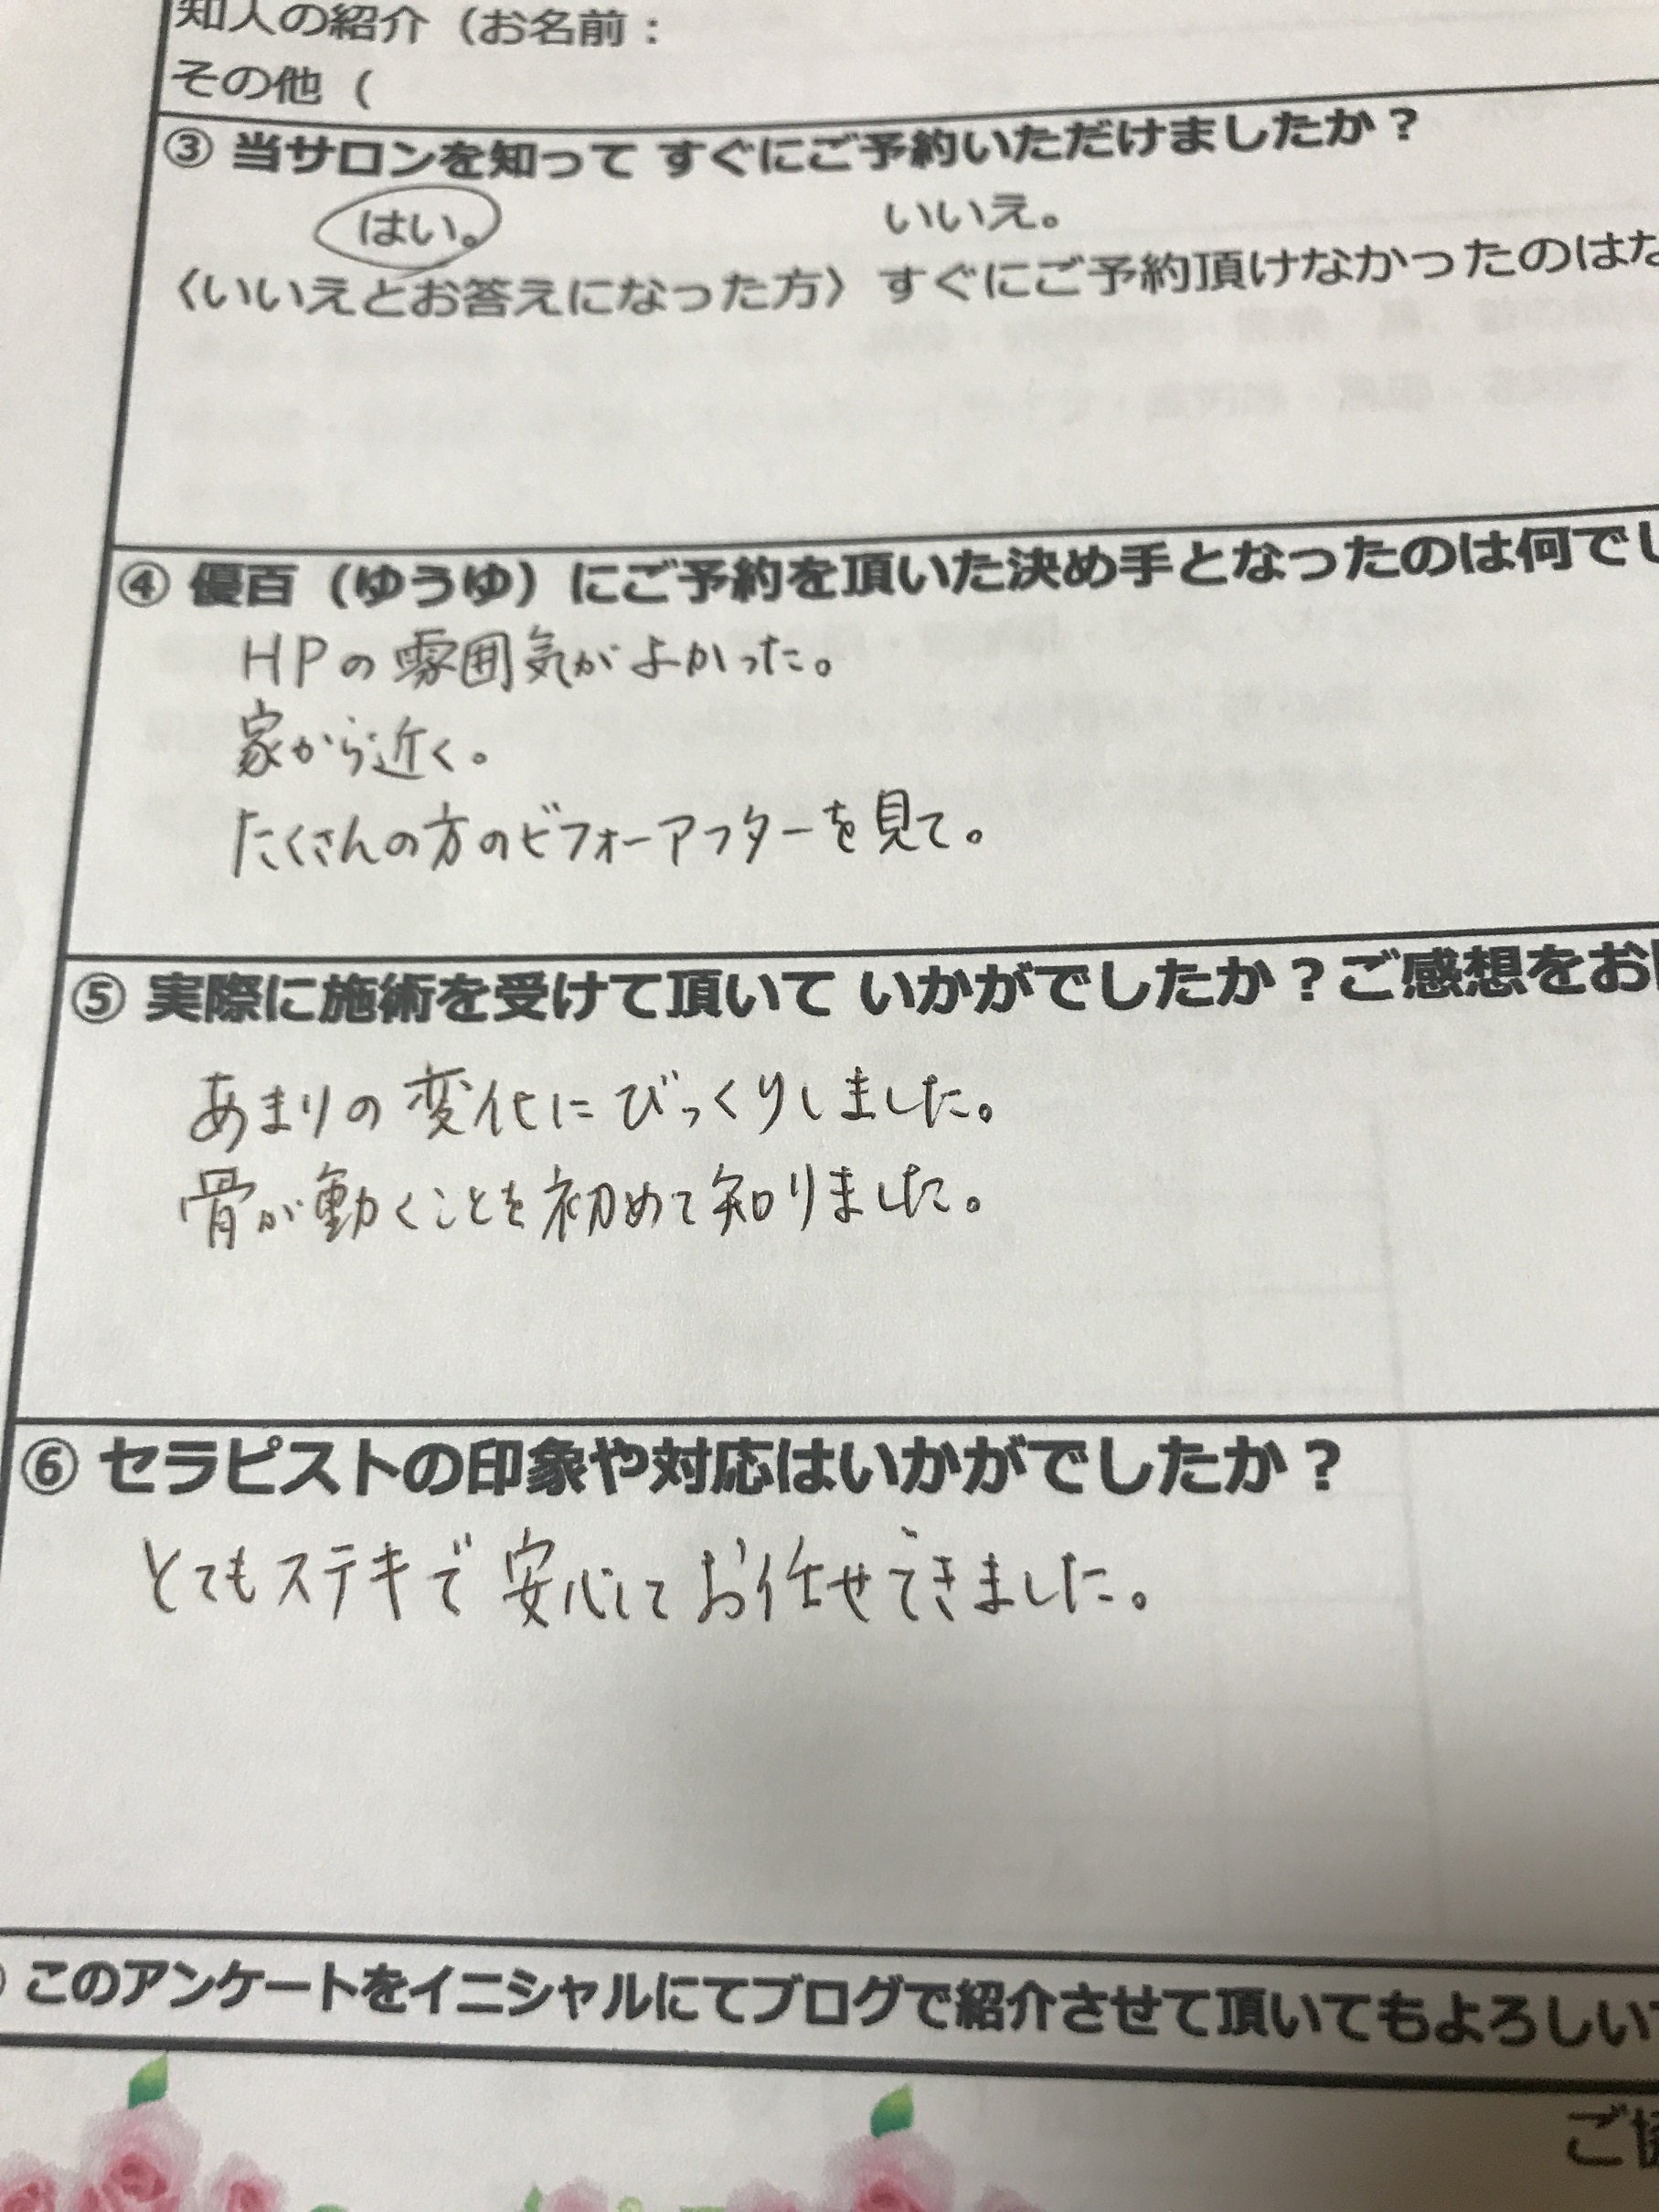 知人の紹介（お名前：
その他（
③ 当サロンを知って すぐにご予約いただけましたか？
はい。 いいえ。
〈いいえとお答えになった方〉すぐにご予約頂けなかったのはな
④ 優百（ゆうゆ）にご予約を頂いた決め手となったのは何でし
HPの雰囲気がよかった。
家から近く。
たくさんの方のビフォーアフターを見て。
⑤ 実際に施術を受けて頂いて いかがでしたか？ご感想をお
あまりの変化にびっくりしました。
骨が動くことを初めて知りました。
⑥ セラピストの印象や対応はいかがでしたか？
とてもステキで安心してお任せできました。
このアンケートをイニシャルにてブログで紹介させて頂いてもよろしい
ご